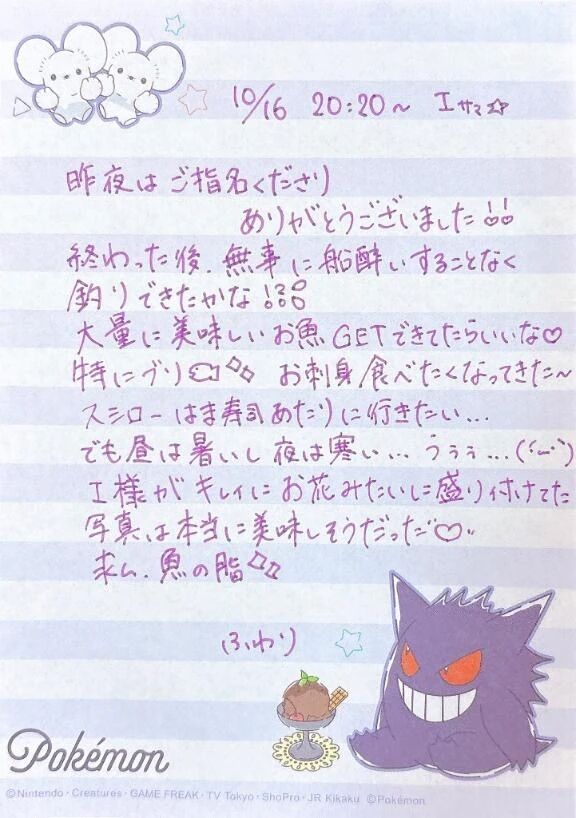 10/16 20:20～ Iサマ☆
昨夜はご指名くださり
ありがとうございました!!
終わった後、無事に船酔いすることなく
釣りできたかな!!
大量に美味しいお魚GETできてたらいいな♡
特にブリ お刺身食べたくなってきた～
スシローはま寿司あたりに行きたい…
でも昼は暑いし夜は寒い…ううぅ…
I様がキレイにお花みたいに盛り付けてた
写真は本当に美味しそうだった♡
求ム、魚の脂
ふわり
Pokémon
©Nintendo・Creatures・GAME FREAK・TV Tokyo・ShoPro・JR Kikaku ©Pokémon